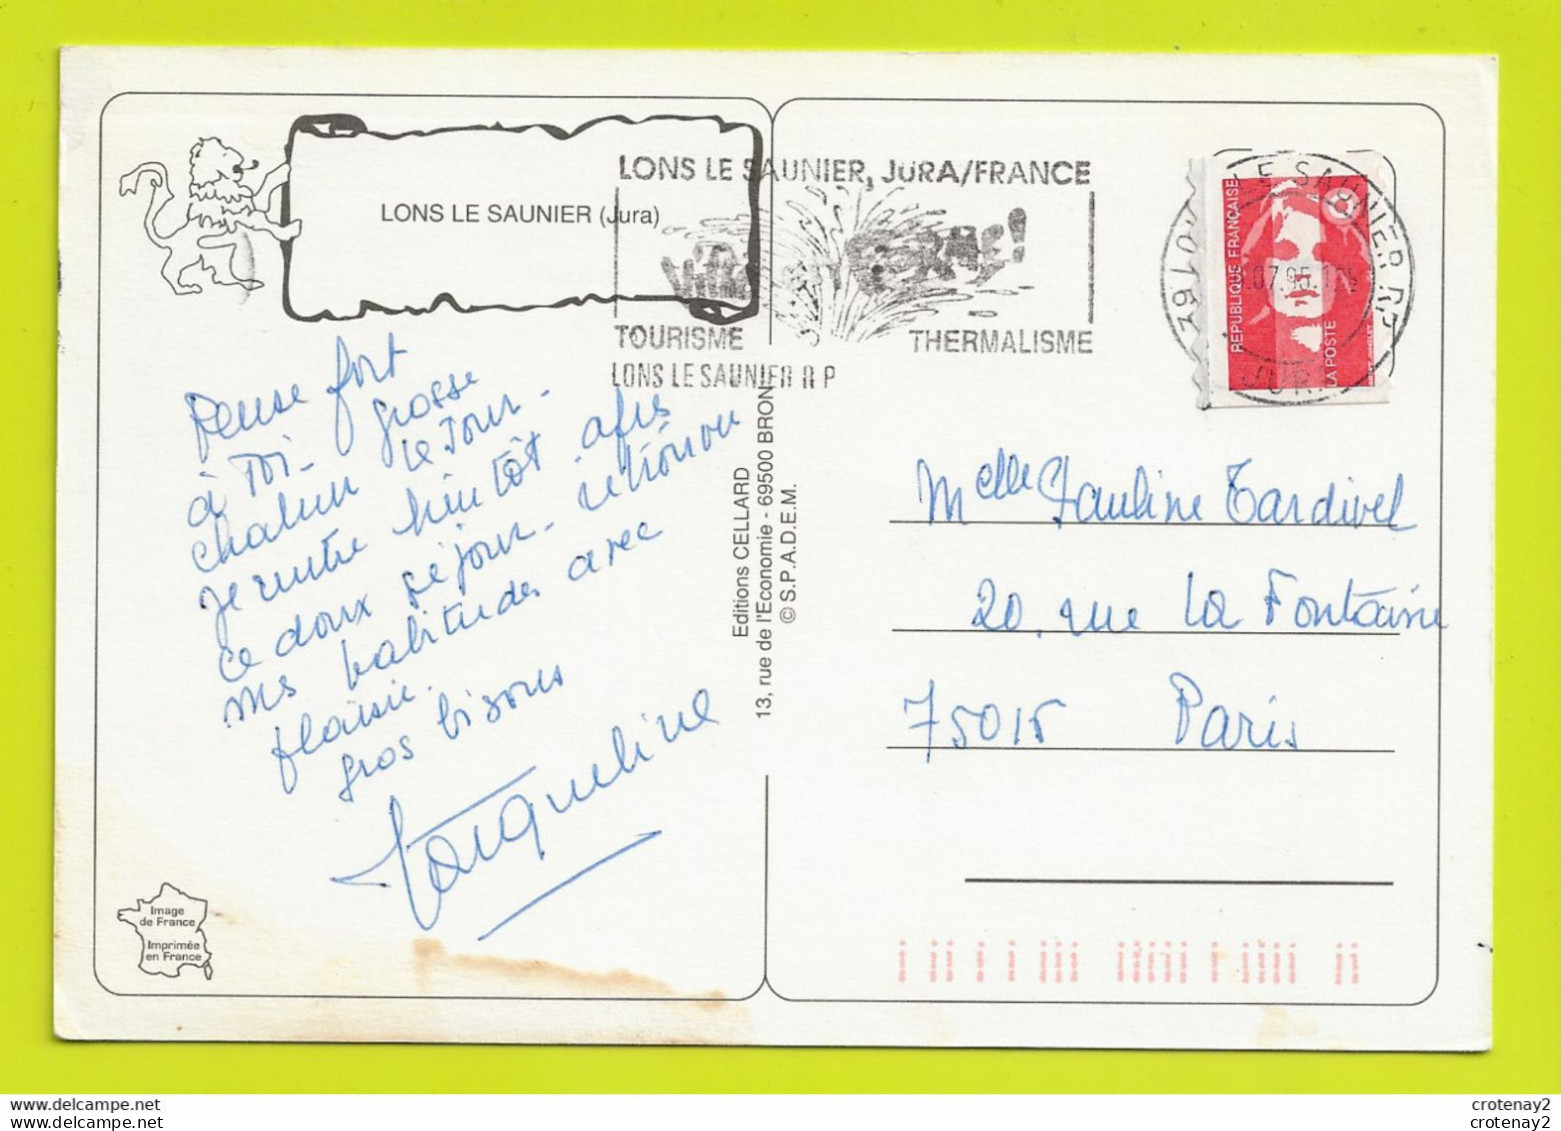 LONS LE SAUNIER (Jura)
LONS LE SAUNIER, JURA/FRANCE
TOURISME THERMALISME
LONS LE SAUNIER R P
LE SAUNIER R.P.
.07.95.
JURA
RÉPUBLIQUE FRANÇAISE
LA POSTE
Pense fort
à toi - grosse
chaleur le jour -
je rentre bientôt après
ce doux séjour - retrouver
mes habitudes avec
plaisir.
gros bisous
Jacqueline
Editions CELLARD
13, rue de l'Economie - 69500 BRON
© S.P.A.D.E.M.
Melle Pauline Tardivel
20, rue La Fontaine
75016 Paris
Image
de France
Imprimée
en France
delcampe.net
www.delcampe.net
crotenay2
crotenay2